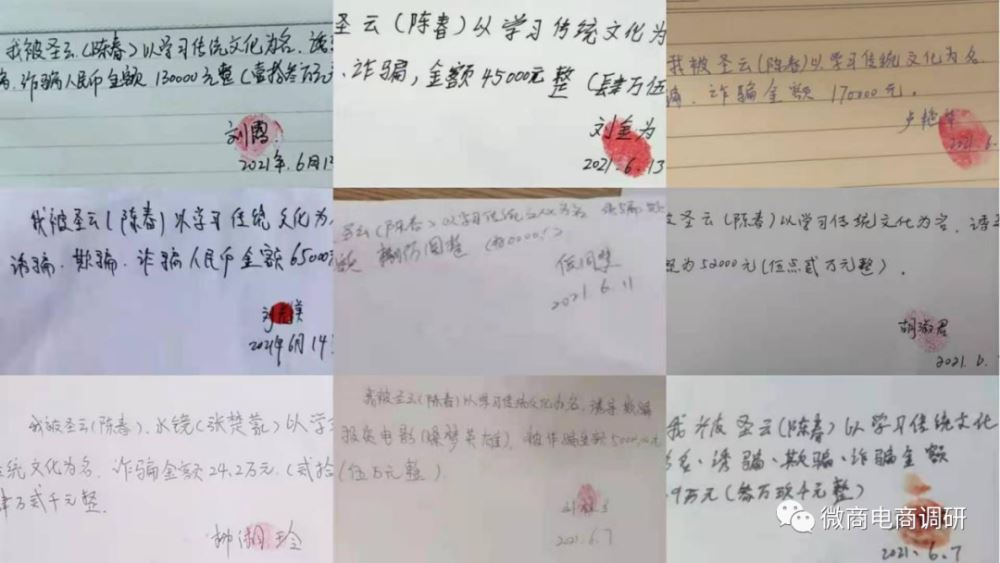 我被圣云(陈春)以学习传统文化为名.
诈骗人民币金额 130000元整(壹拾叁万元
刘
2021年.6月13
圣云(陈春)以学习传统文化为
诈骗,金额45000元整(肆万伍
刘金为
2021.6.13
我被圣云(陈春)以学习传统文化为名.
诈骗金额170000元.
2021.6.
我被圣云(陈春)以学习传统文化为
诱骗.欺骗.诈骗人民币金额65000
2021年6月14
圣云(陈春)以学习传统文化为名
2021.6.11
圣云(陈春)以学习传统文化为名.
为52000元(伍点贰万元整).
胡淑君
2021.6.
我被圣云(陈春).水镜(张楚 )以学
统文化为名.诈骗金额24.2万元.(贰拾
肆万贰千元整.
柳 玲
我被圣云(陈春)以学习传统文化为名.诱导欺骗
投资电影( 梦英雄).被诈骗金额50000.00元
(伍万元整).
2021.6.7
我 被圣云(陈春)以学习传统文化
名、诱骗、欺骗、诈骗金额
.9万元(叁万玖千元整)
2021.6.7
微商电商调研